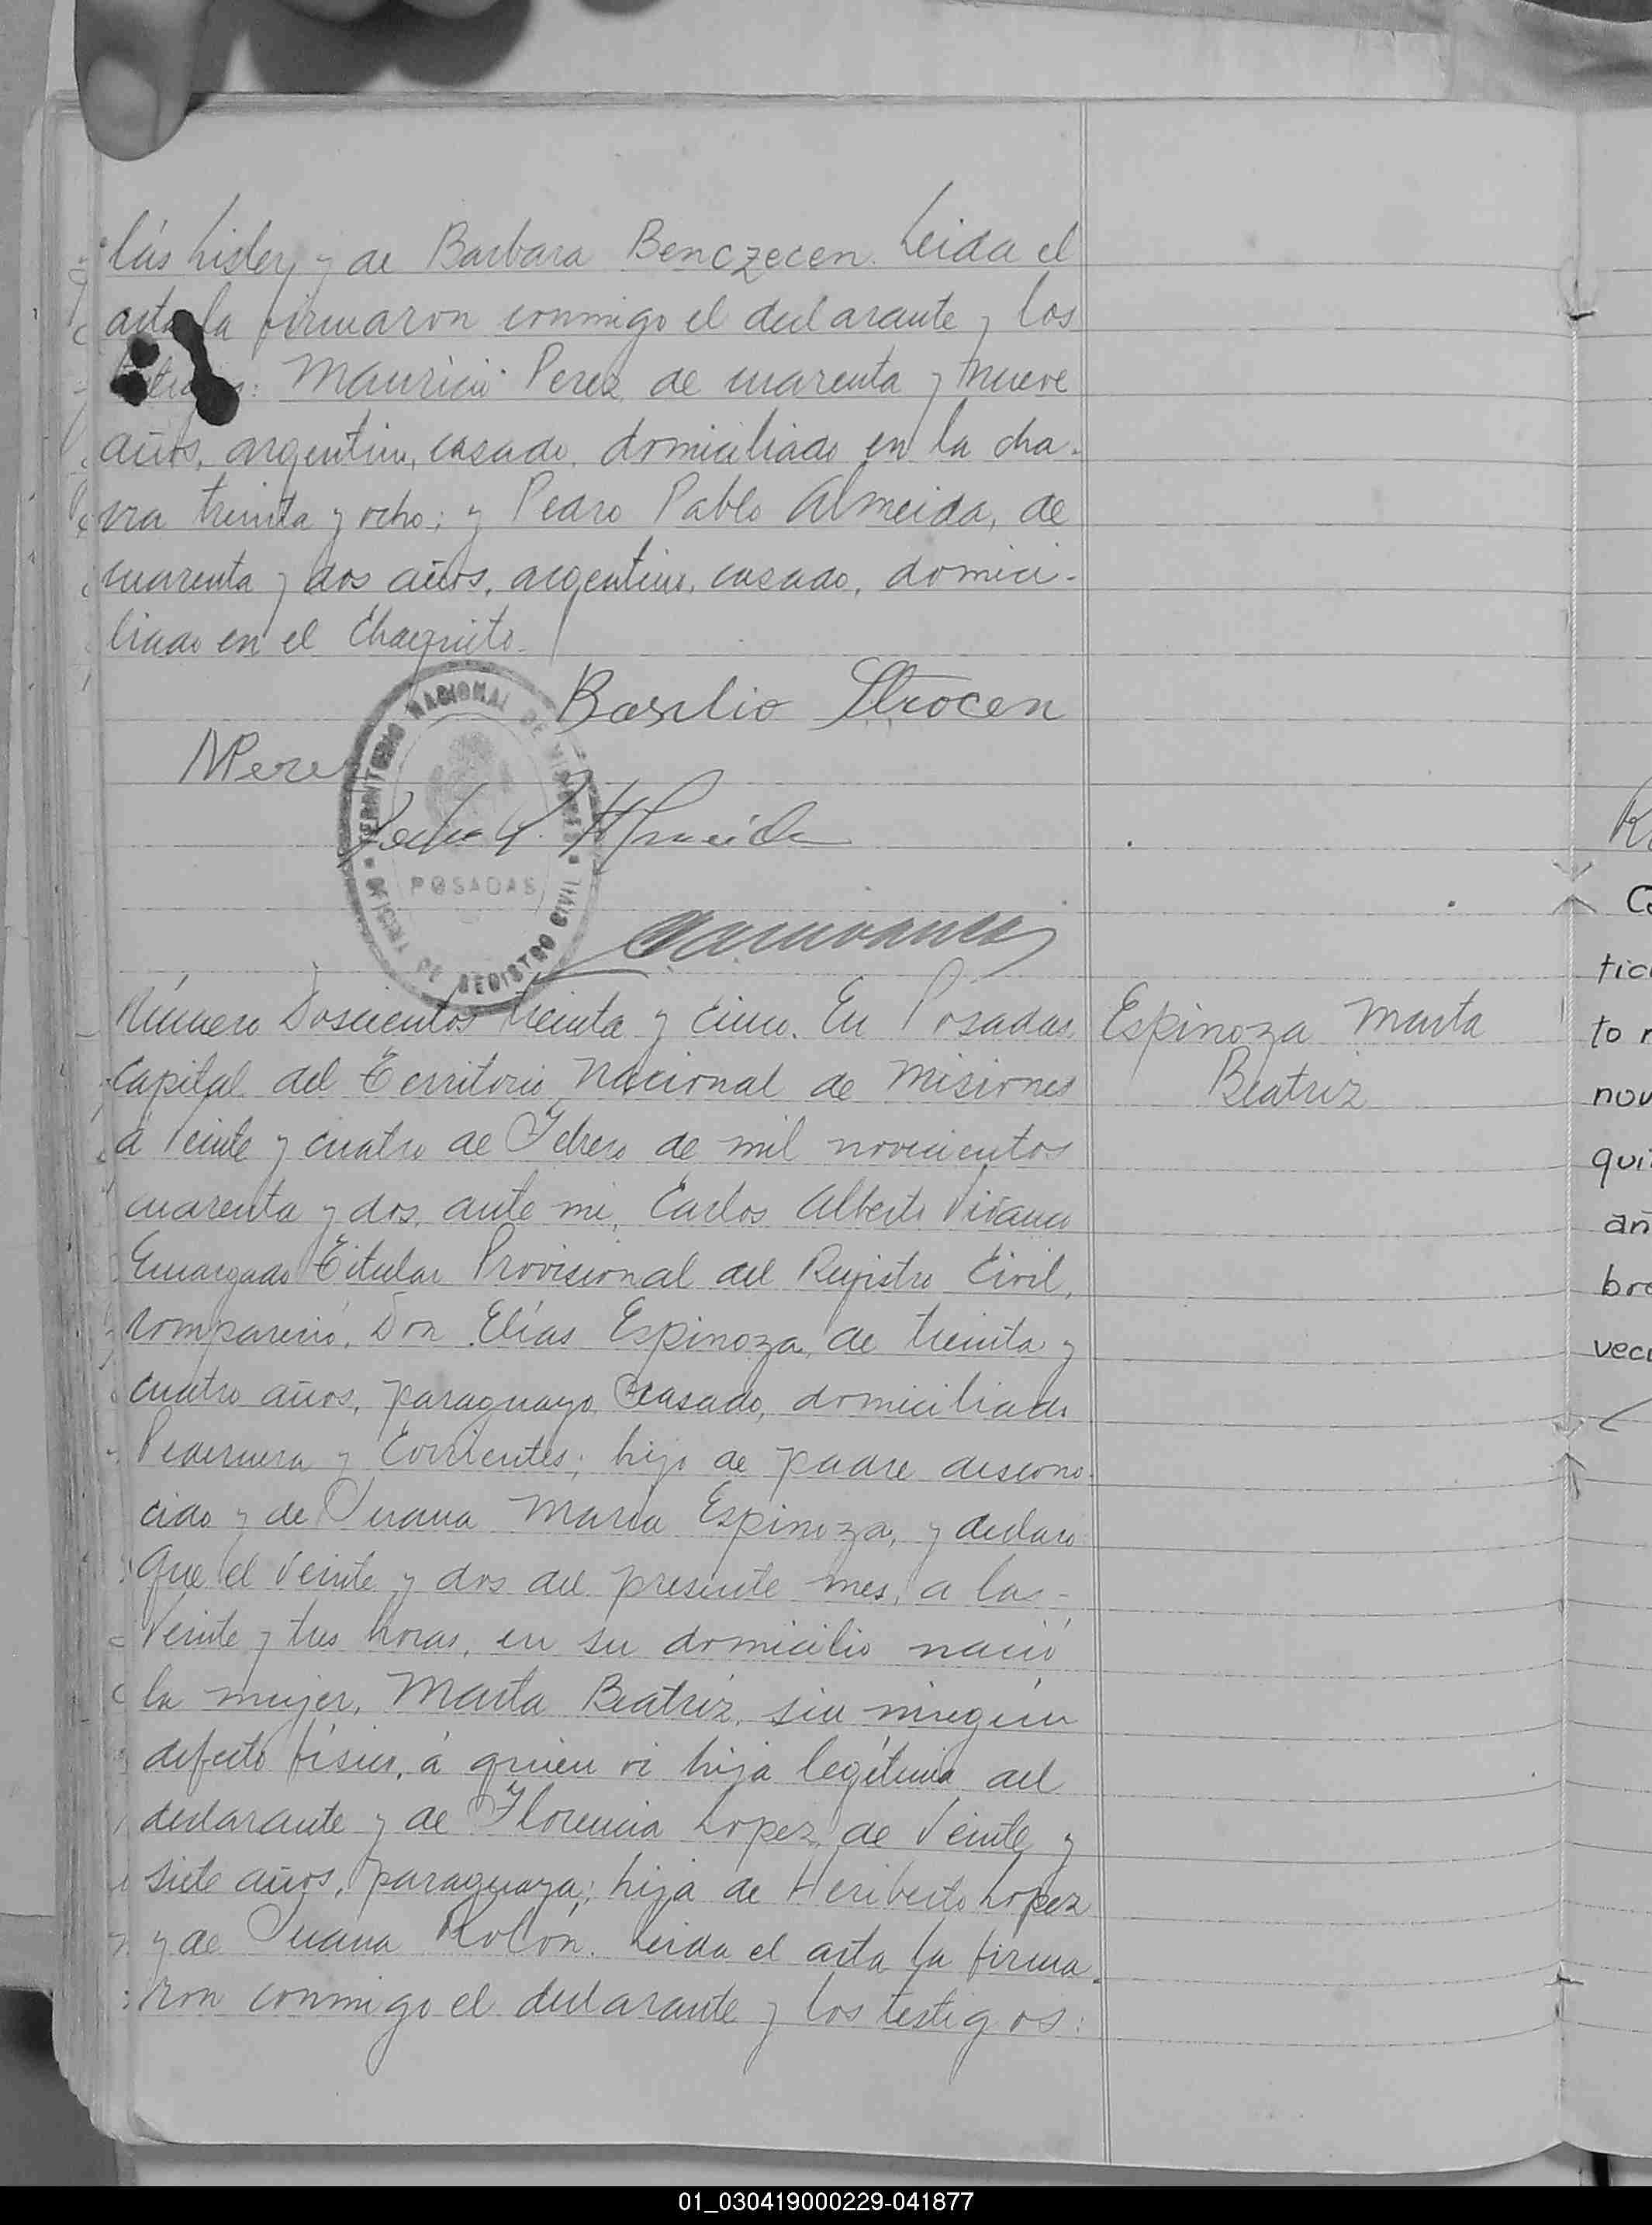 lás Lisler, y de Barbara Benczecen. Leida el
acta la firmaron conmigo el declarante y los
testigos: Mauricio Perez de cuarenta y nueve
años, argentino, casado, domiciliado en la cha-
cra treinta y ocho; y Pedro Pablo Almeida, de
cuarenta y dos años, argentino, casado, domici-
liado en el Chaquito.
Basilio Strocen
MPerez
Pedro P. Almeida
TERRITORIO NACIONAL DE MISIONES
POSADAS
OFICINA DE REGISTRO CIVIL
Número Doscientos treinta y cinco. En Posadas,
Capital del Territorio Nacional de Misiones
á Veinte y cuatro de Febrero de mil novecientos
cuarenta y dos, ante mi, Carlos Alberto Vivanco
Encargado Titular Provisional del Registro Civil,
compareció, Don Elías Espinoza, de treinta y
cuatro años, paraguayo, casado, domiciliado
Pedernera y Corrientes; hijo de padre descono-
cido y de Juana María Espinoza, y declaro
Que el Veinte y dos del presente mes, a las -
Veinte y tres horas, en su domicilio nació
la mujer, Marta Beatriz, sin ningún
defecto físico, á quien vi hija legítima del
declarante y de Florencia Lopez, de Veinte y
siete años, paraguaya; hija de Heriberto Lopez
y de Juana Rolón. Leida el acta la firma-
ron conmigo el declarante y los testigos:
Espinoza Marta
Beatriz
tic
to
nov
qui
añ
bre
veci
01_030419000229-041877